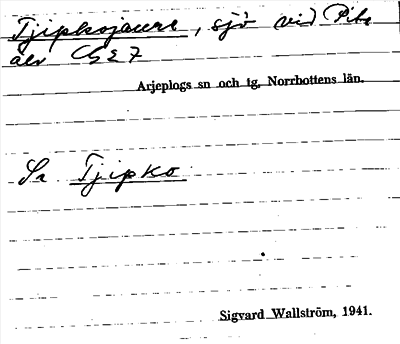 Tjipkojaure, sjö vid Pite
älv GE7
Arjeplogs sn och tg, Norrbottens län.
Se Tjipko
Sigvard Wallström, 1941.